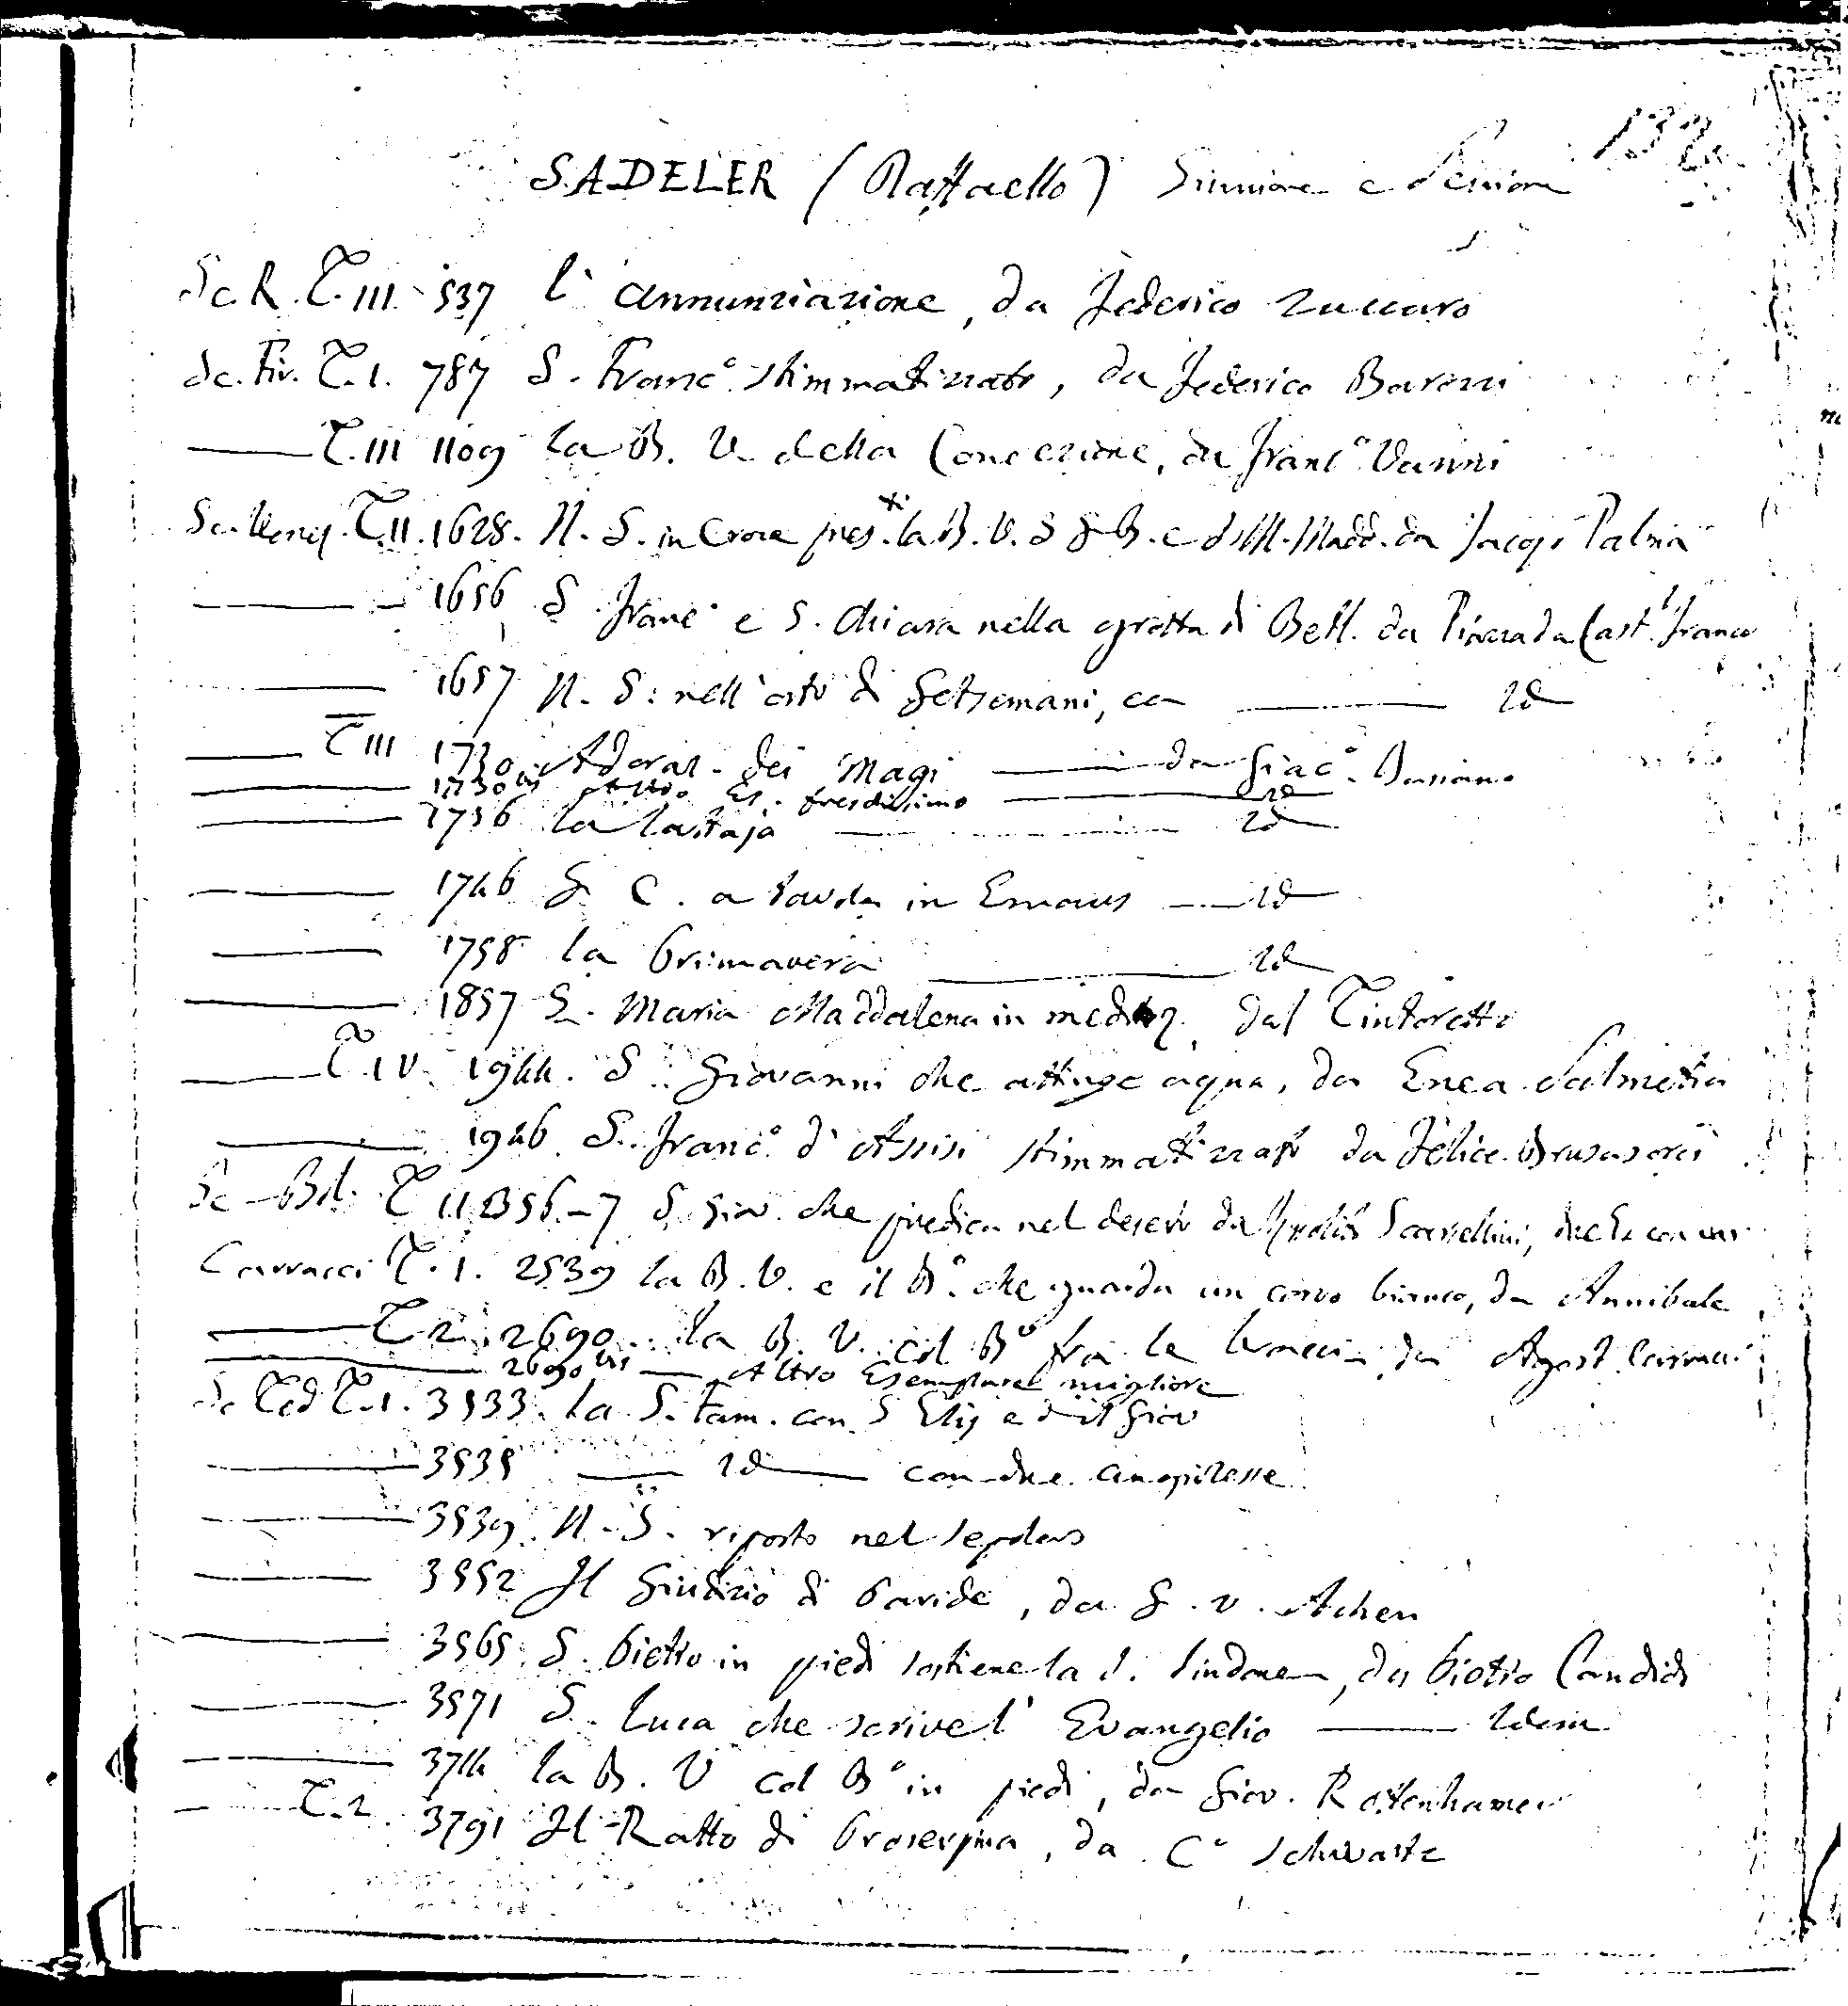 132
SADELER (Raffaello) Giuniore e Seniore
Sc. R. T. III 537 l'annunziazione, da Federico Zuccaro
Sc. Fir. T. 1. 787 S. Franc.º stimmatizzato, da Federico Barozzi
—— T. III 1109 la B. V. della Concezione, da Franc.º Vanni
Sc. Venez. T. II. 1628. N. S. in Croce pres. la B. V. S. e S. M. Madd. da Jacopo Palma
—— 1656 S. Franc.º e S. Chiara nella grotta di Betl. da Piazza da Cast. franco
—— 1657 N. S. nell'orto di Getsemani, ca —— Id
—— T III 1730 Adoraz. dei Magi —— da Giac.º Bassano
—— 1730 bis Altro Es. freschissimo —— Id
—— 1736 la —— Id
—— 1746 G. C. a tavola in Emaus —— Id
—— 1758 la Primavera —— Id
—— 1857 S. Maria Maddalena in meditaz. dal Tintoretto
—— T. IV. 1944. S. Giovanni che attinge aqua, da Enea Salmetia
—— 1946. S. Franc.º d'Assisi stimmatizzato da Felice Brusasorci
Sc. Bol. T. II 2356-7 S. Giov. che predica nel deserto da Ippolito Scarsellini, due Es. con var.
Carracci T. 1. 2539 la B. V. e il B.º che guarda un corvo bianco, da Annibale
—— T. 2. 2690. la B. V. col B.º fra le braccia, da Agost. Carracci
—— 2690 bis —— Altro Esemplare migliore
Sc Ted T. 1. 3533. la S. Fam. con S Elis e il Giov
—— 3535 —— Id —— con due
—— 3539 N. S. riposto nel sepolcro
—— 3552 Il Giudizio di Paride, da G. v. Achen
—— 3565 S. Pietro in piedi sostiene la S. Sindone, da Pietro Candido
—— 3571 S. Luca che scrive l'Evangelio —— Idem
—— 3714 la B. V col B.º in piedi, da Giov. Rottenhamer
—— T. 2. 3791 Il Ratto di Proserpina, da C.º Schwartz